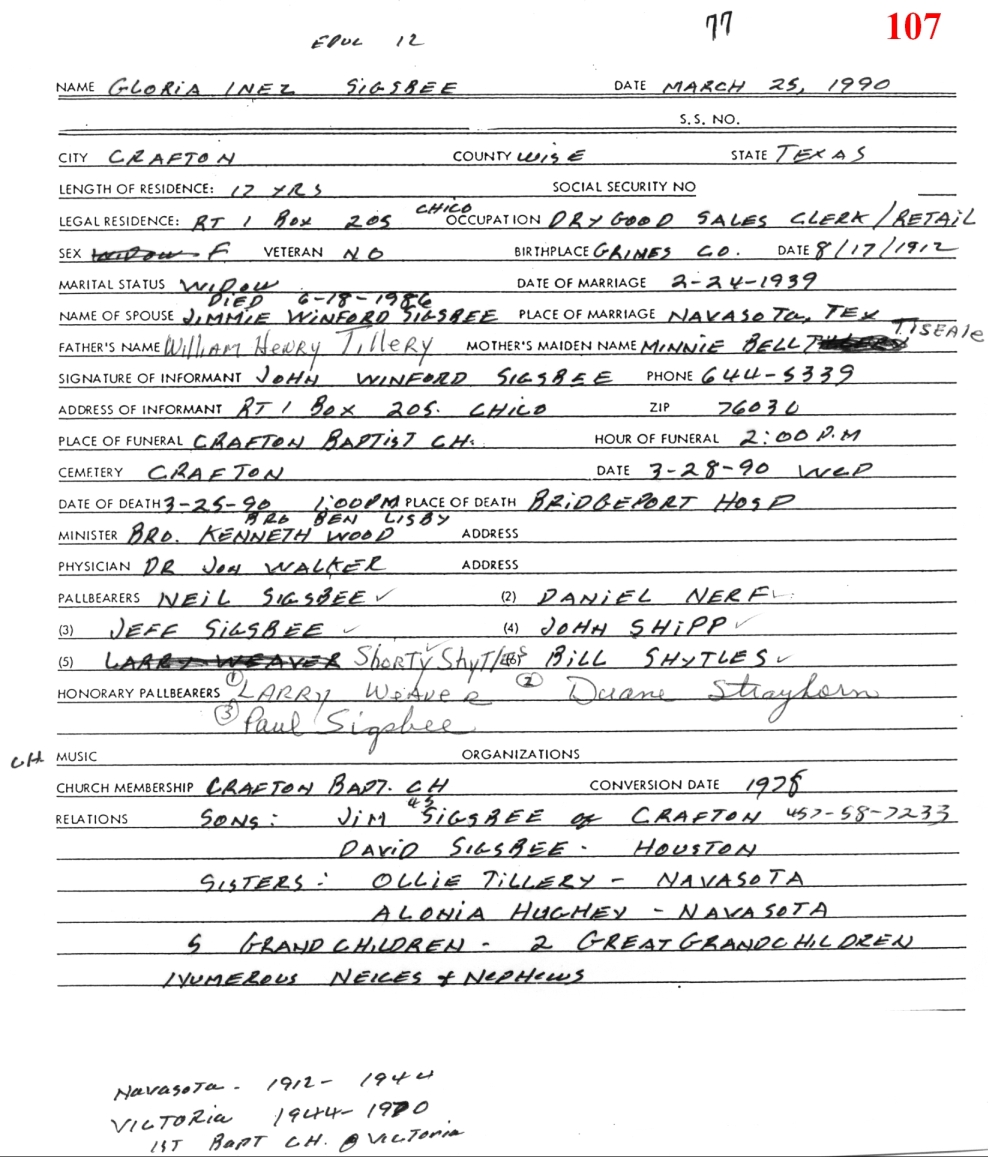 77 107
EPUC 12
NAME GLORIA INEZ SIGSBEE DATE MARCH 25, 1990
S.S. NO.
CITY CRAFTON COUNTY WISE STATE TEXAS
LENGTH OF RESIDENCE: 12 YRS SOCIAL SECURITY NO
LEGAL RESIDENCE: RT 1 BOX 205 CHICO OCCUPATION DRY GOOD SALES CLERK/RETAIL
SEX WIDOW F VETERAN NO BIRTHPLACE GRIMES CO. DATE 8/17/1912
MARITAL STATUS WIDOW DATE OF MARRIAGE 2-24-1939
DIED 6-18-1986
NAME OF SPOUSE JIMMIE WINFORD SIGSBEE PLACE OF MARRIAGE NAVASOTA, TEX
FATHER'S NAME William Henry Tillery MOTHER'S MAIDEN NAME MINNIE BELL TISEALE
SIGNATURE OF INFORMANT JOHN WINFORD SIGSBEE PHONE 644-5339
ADDRESS OF INFORMANT RT 1 BOX 205. CHICO ZIP 76030
PLACE OF FUNERAL CRAFTON BAPTIST CH. HOUR OF FUNERAL 2:00 P.M
CEMETERY CRAFTON DATE 3-28-90 WED
DATE OF DEATH 3-25-90 1:00PM PLACE OF DEATH BRIDGEPORT HOSP
BRO BEN LISBY
MINISTER BRO. KENNETH WOOD ADDRESS
PHYSICIAN DR JON WALKER ADDRESS
PALLBEARERS NEIL SIGSBEE ✓ (2) DANIEL NERF ✓
(3) JEFF SIGSBEE ✓ (4) JOHN SHIPP ✓
(5) LARRY WEAVER Shorty Shytles (6) BILL SHYTLES ✓
HONORARY PALLBEARERS ① LARRY WEAVER ② Duane Strayhorn
③ Paul Sigsbee
CH MUSIC ORGANIZATIONS
CHURCH MEMBERSHIP CRAFTON BAPT. CH CONVERSION DATE 1978
RELATIONS SONS: JIM SIGSBEE of CRAFTON 457-58-7233
DAVID SIGSBEE - HOUSTON
SISTERS: OLLIE TILLERY - NAVASOTA
ALONIA HUGHEY - NAVASOTA
5 GRANDCHILDREN - 2 GREAT GRANDCHILDREN
NUMEROUS NEICES & NEPHEWS
NAVASOTA - 1912 - 1944
VICTORIA 1944-1970
1ST BAPT CH. @ VICTORIA